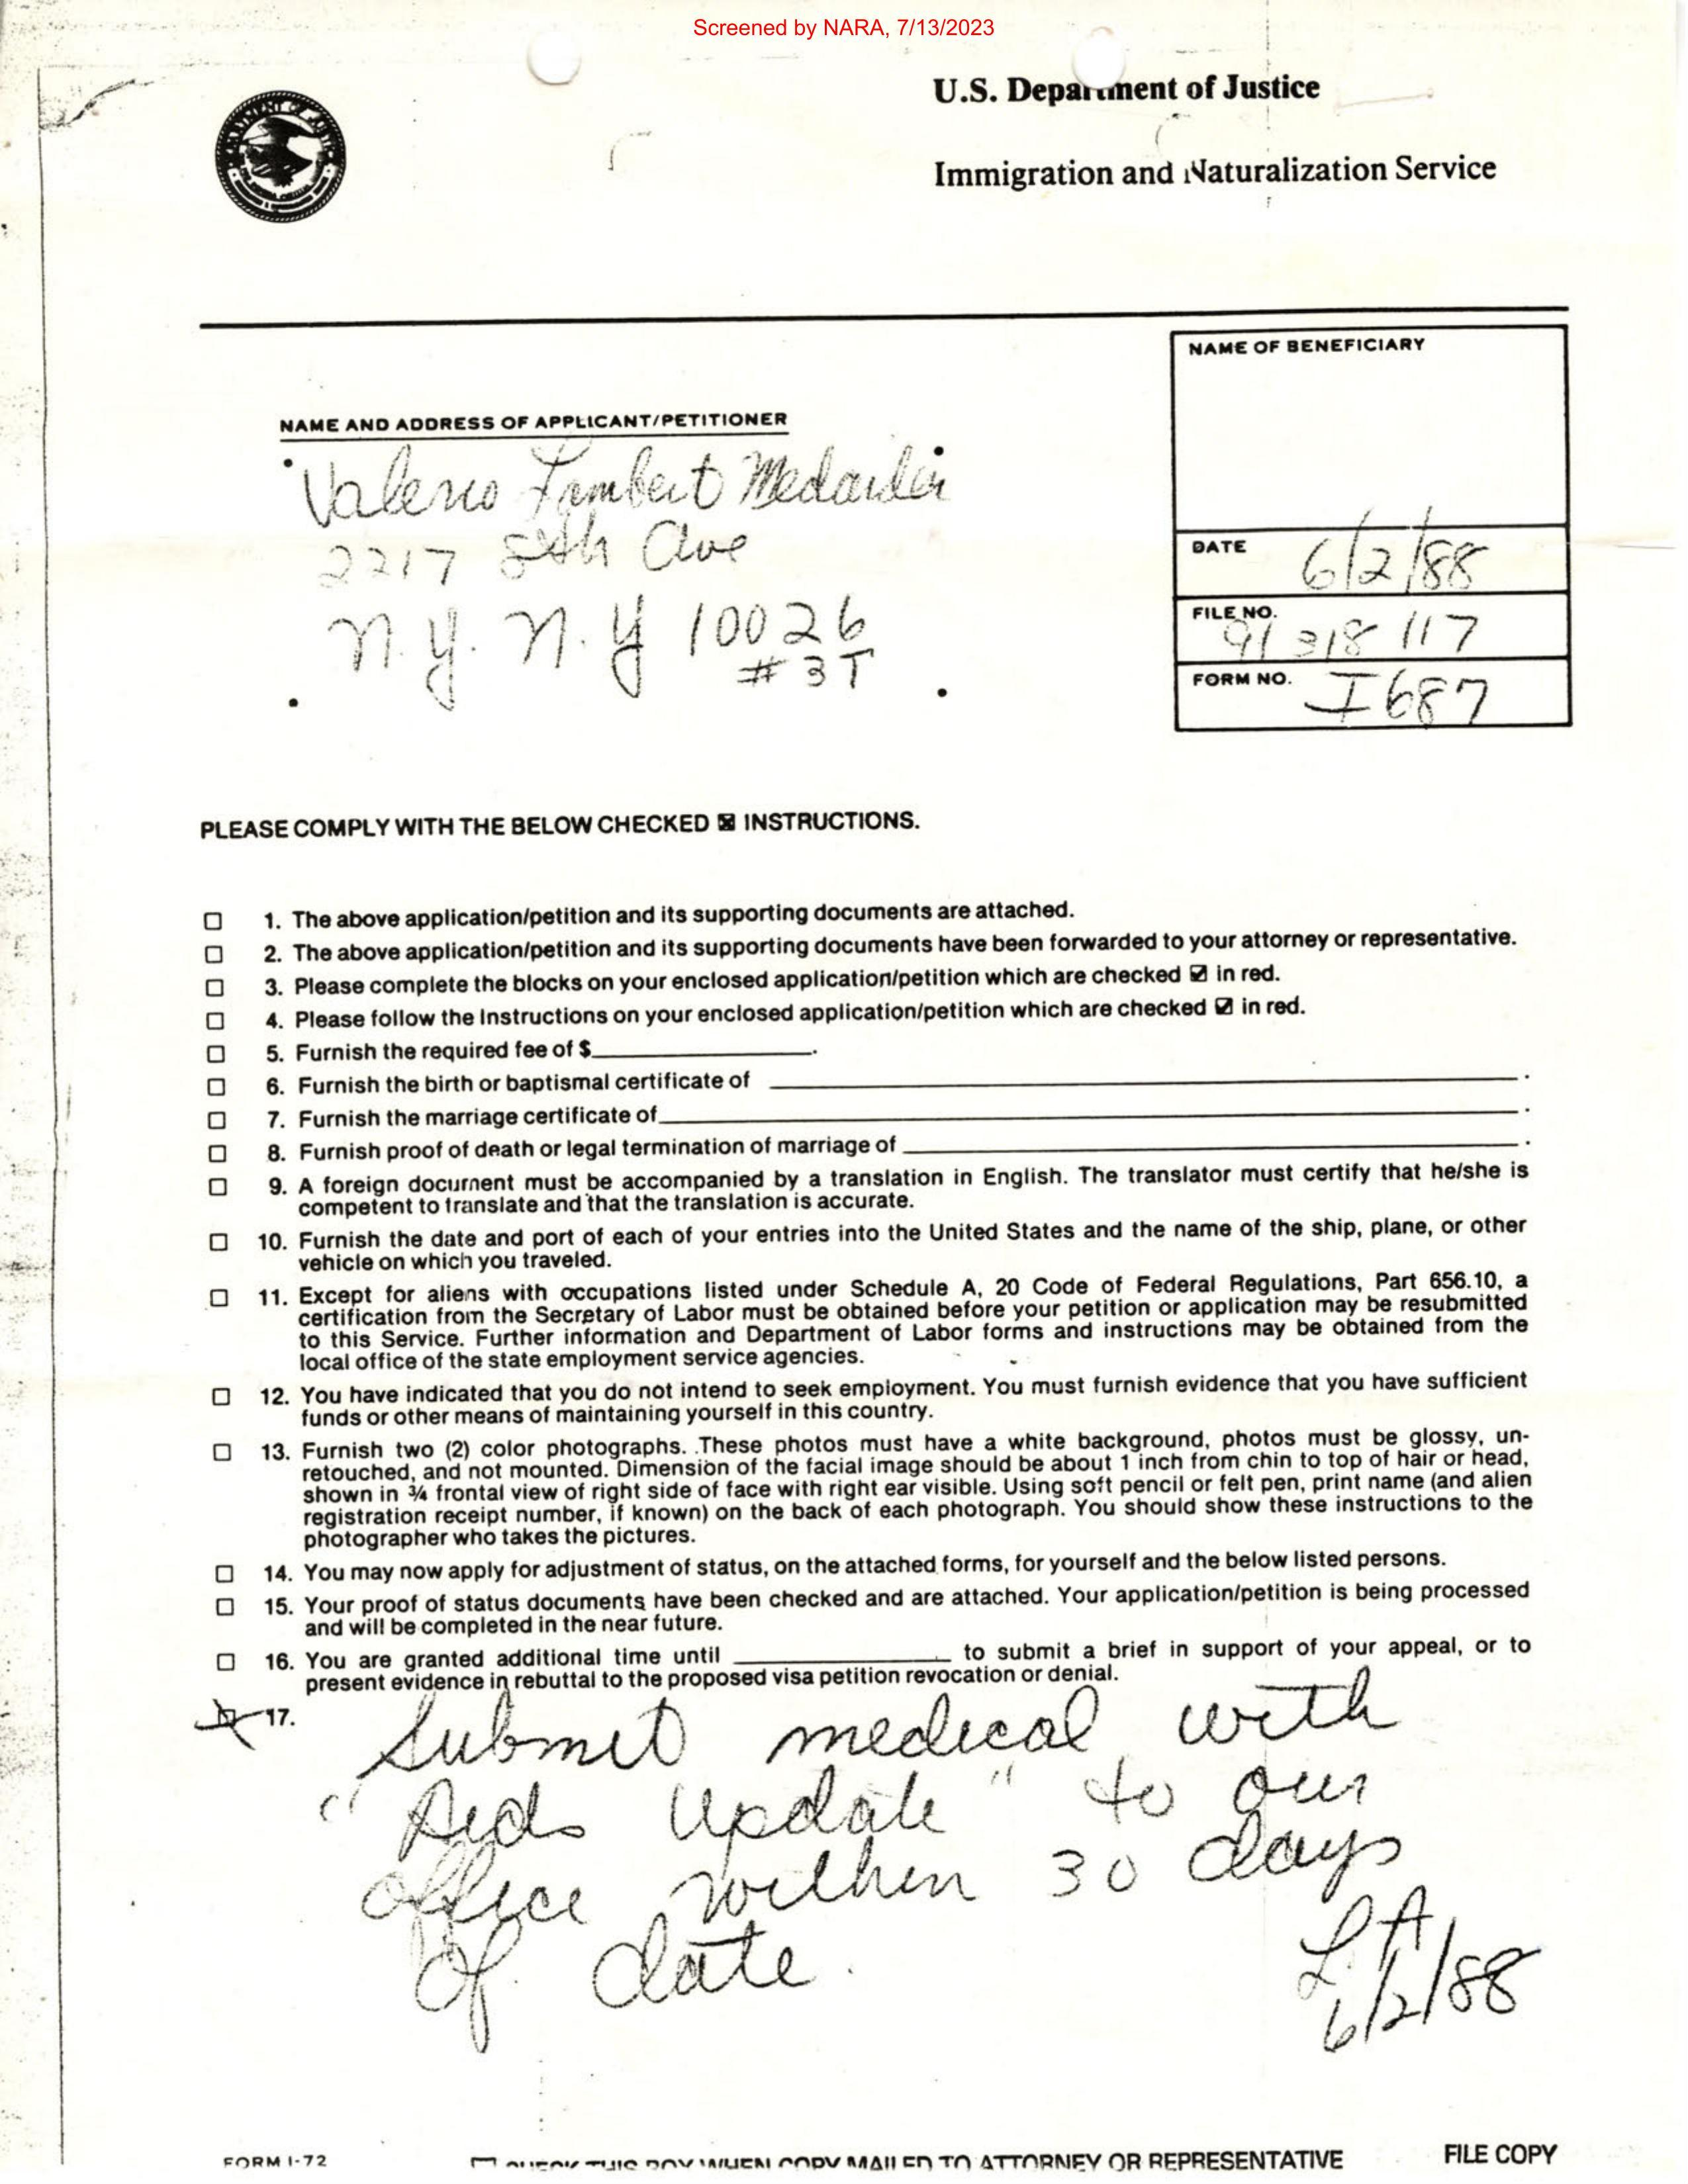 Screened by NARA, 7/13/2023
U.S. Department of Justice
Immigration and Naturalization Service
NAME OF BENEFICIARY
NAME AND ADDRESS OF APPLICANT/PETITIONER
Valerio Lambert
2217 8th Ave
N.Y. N.Y 10026
# 3T
DATE 6/2/88
FILE NO. 91 318 117
FORM NO. I687
PLEASE COMPLY WITH THE BELOW CHECKED ☒ INSTRUCTIONS.
☐ 1. The above application/petition and its supporting documents are attached.
☐ 2. The above application/petition and its supporting documents have been forwarded to your attorney or representative.
☐ 3. Please complete the blocks on your enclosed application/petition which are checked ☑ in red.
☐ 4. Please follow the Instructions on your enclosed application/petition which are checked ☑ in red.
☐ 5. Furnish the required fee of $____________.
☐ 6. Furnish the birth or baptismal certificate of ____________.
☐ 7. Furnish the marriage certificate of____________.
☐ 8. Furnish proof of death or legal termination of marriage of ____________.
☐ 9. A foreign document must be accompanied by a translation in English. The translator must certify that he/she is
competent to translate and that the translation is accurate.
☐ 10. Furnish the date and port of each of your entries into the United States and the name of the ship, plane, or other
vehicle on which you traveled.
☐ 11. Except for aliens with occupations listed under Schedule A, 20 Code of Federal Regulations, Part 656.10, a
certification from the Secretary of Labor must be obtained before your petition or application may be resubmitted
to this Service. Further information and Department of Labor forms and instructions may be obtained from the
local office of the state employment service agencies.
☐ 12. You have indicated that you do not intend to seek employment. You must furnish evidence that you have sufficient
funds or other means of maintaining yourself in this country.
☐ 13. Furnish two (2) color photographs. These photos must have a white background, photos must be glossy, un-
retouched, and not mounted. Dimension of the facial image should be about 1 inch from chin to top of hair or head,
shown in ¾ frontal view of right side of face with right ear visible. Using soft pencil or felt pen, print name (and alien
registration receipt number, if known) on the back of each photograph. You should show these instructions to the
photographer who takes the pictures.
☐ 14. You may now apply for adjustment of status, on the attached forms, for yourself and the below listed persons.
☐ 15. Your proof of status documents have been checked and are attached. Your application/petition is being processed
and will be completed in the near future.
☐ 16. You are granted additional time until ____________ to submit a brief in support of your appeal, or to
present evidence in rebuttal to the proposed visa petition revocation or denial.
☒ 17. Submit medical with
"Aids Update" to our
office within 30 days
of date.
L.A
6/2/88
FORM I-72
☐ CHECK THIS BOX WHEN COPY MAILED TO ATTORNEY OR REPRESENTATIVE
FILE COPY